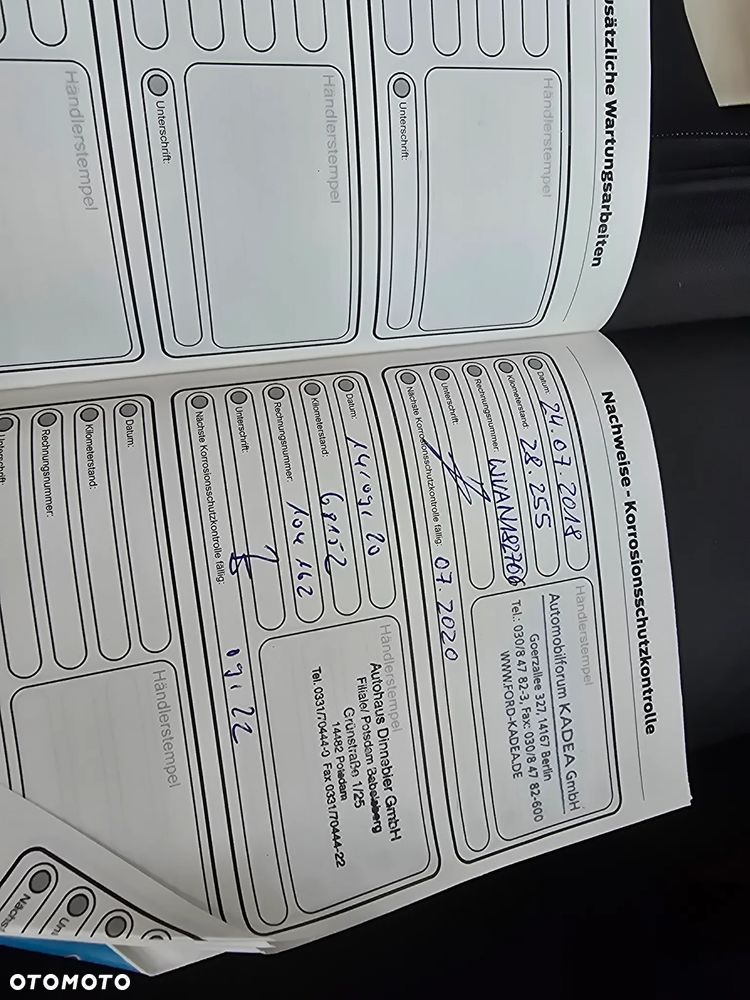 usätzliche Wartungsarbeiten
Händlerstempel
Unterschrift:
Händlerstempel
Unterschrift:
Händlerstempel
Nachweise - Korrosionsschutzkontrolle
Datum: 24.07.2018
Kilometerstand: 28.255
Rechnungsnummer: WIAN182706
Unterschrift:
Nächste Korrosionsschutzkontrolle fällig: 07.2020
Händlerstempel
Automobilforum KADEA GmbH
Goerzallee 327, 14167 Berlin
Tel.: 030/8 47 82-3, Fax: 030/8 47 82-600
WWW.FORD-KADEA.DE
Datum: 14.09.20
Kilometerstand: 68152
Rechnungsnummer: 104 162
Unterschrift:
Nächste Korrosionsschutzkontrolle fällig: 09.22
Händlerstempel
Autohaus Dinnebier GmbH
Filiale/ Potsdam Babelsberg
Grünstraße 1/25
14482 Potsdam
Tel. 0331/70444-0 Fax 0331/70444-22
Datum:
Kilometerstand:
Rechnungsnummer:
Unterschrift:
Händlerstempel
Nächst
OTOMOTO